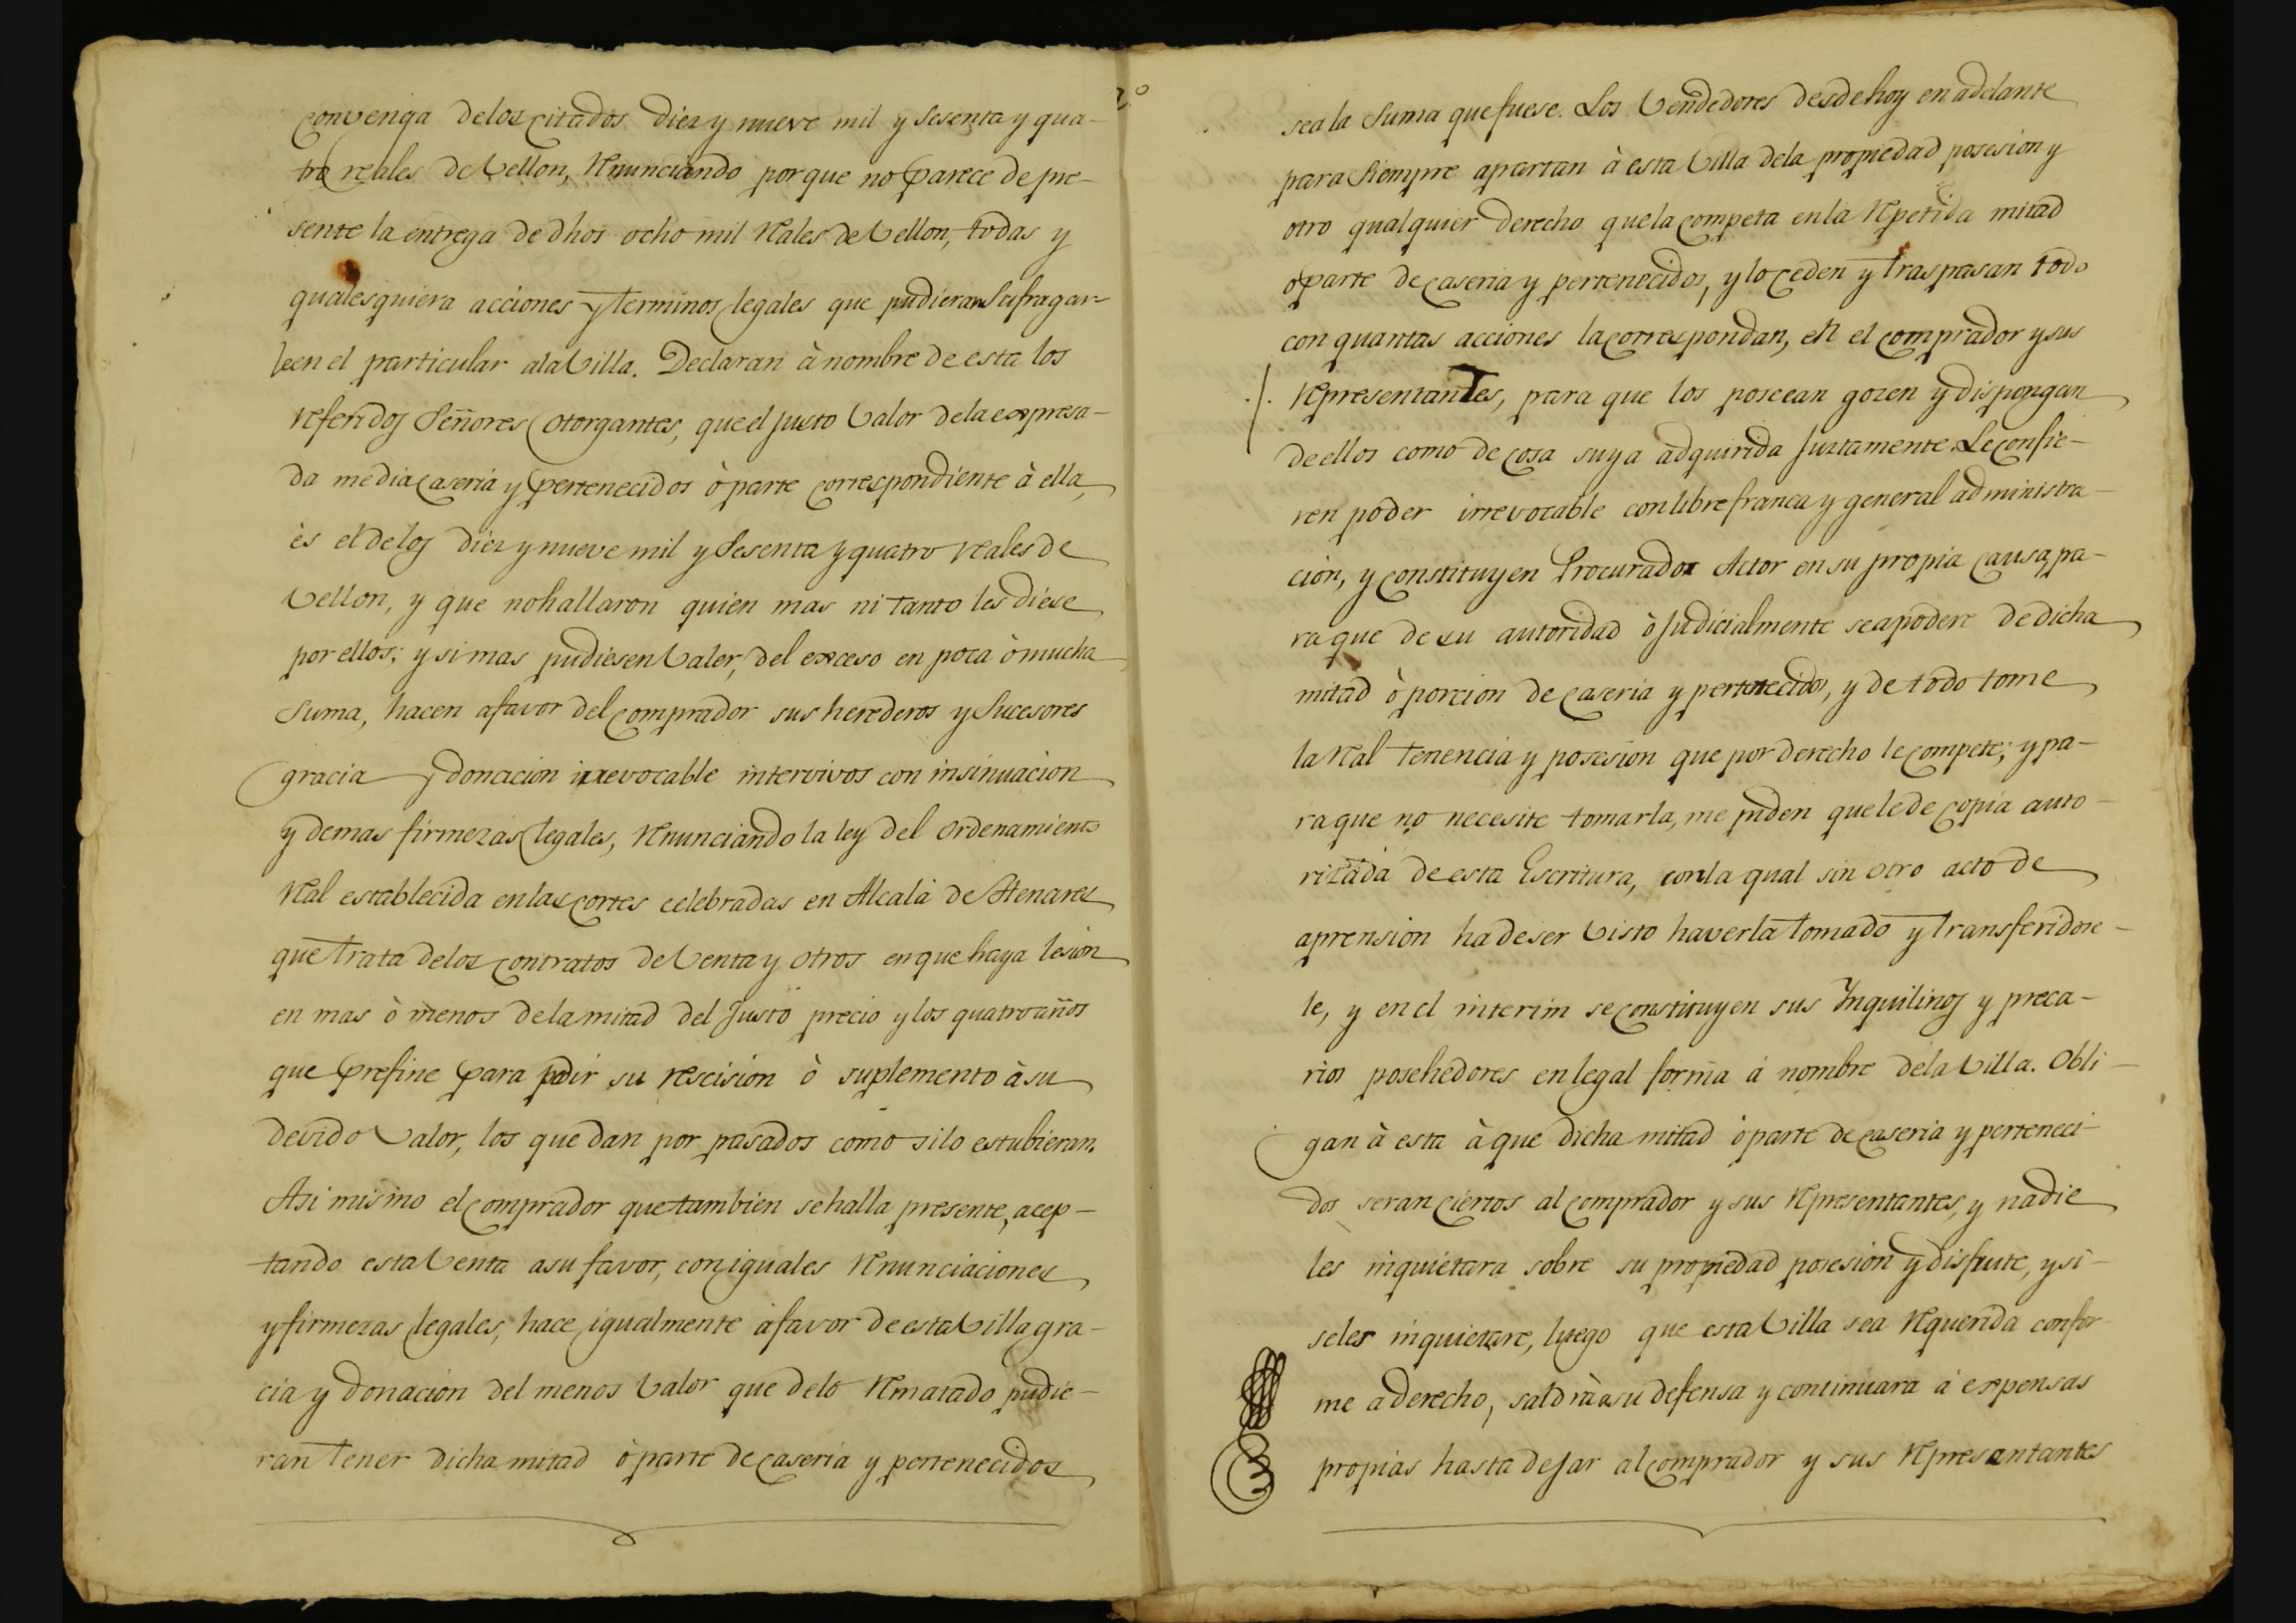 convenga delos citados diez y nueve mil y sesenta y qua-
tro reales de Vellon, Renunciando porque no parece de pre-
sente la entrega de dhos ocho mil Reales de Vellon, todas y
qualesquiera acciones y terminos legales que pudieran Sufragar-
le en el particular ala Villa. Declaran à nombre de esta los
referidos Señores Otorgantes, que el justo Valor dela expresa-
da media Caseria y pertenecidos ò parte correspondiente à ella,
ès el delos diez y nueve mil y Sesenta y quatro reales de
Vellon, y que no hallaron quien mas ni tanto les diese
por ellos; y si mas pudiesen Valer, del exceso en poca ò mucha
Suma, hacen afavor del comprador sus herederos y Sucesores
gracia y donacion irrevocable intervivos con insinuacion
y demas firmezas legales, Renunciando la ley del Ordenamiento
Real establecida en las cortes celebradas en Alcalà de Henares
que trata delos contratos de Venta y otros en que haya lesion
en mas ò menos dela mitad del Justo precio y los quatro años
que prefine para pedir su rescision ò suplemento à su
devido Valor, los que dan por pasados como silo estubieran.
Asi mismo el comprador que tambien se halla presente, acep-
tando esta Venta asu favor, con iguales Renunciaciones
y firmezas legales, hace igualmente àfavor de esta Villa gra-
cia y donacion del menos Valor que delo Rematado pudie-
ran tener dicha mitad ò parte de caseria y pertenecidos
sea la Suma que fuese. Los Vendedores desde hoy en adelante
para Siempre apartan à esta Villa dela propiedad posesion y
otro qualquier derecho que la competa en la Repetida mitad
o parte de caseria y pertenecidos, y lo ceden y traspasan todo
con quantas acciones la correspondan, en el comprador y sus
Representantes, para que los poseean gozen y dispongan
de ellos como de cosa suya adquirida Justamente. Le confie-
ren poder irrevocable con libre franca y general administra-
cion, y constituyen Procurador Actor en su propia causa, pa-
ra que de su autoridad ò Judicialmente se apodere de dicha
mitad ò porcion de caseria y pertenecidos, y de todo tome
la Real tenencia y posesion que por derecho le compete; y pa-
ra que no necesite tomarla, me piden que le de copia auto-
rizada de esta Escritura, con la qual sin otro acto de
aprension ha de ser Visto haverla tomado y transferidose-
le, y en el interim se constituyen sus Ynquilinos y preca-
rios posehedores en legal forma à nombre dela Villa. Obli-
gan à esta à que dicha mitad ò parte de caseria y perteneci-
dos seran ciertos al comprador y sus Representantes, y nadie
les inquietara sobre su propiedad posesion y disfrute, y si
seles inquietare, luego que esta Villa sea Requerida confor
me a derecho, saldrà asu defensa y continuara à expensas
propias hasta dejar al comprador y sus Representantes